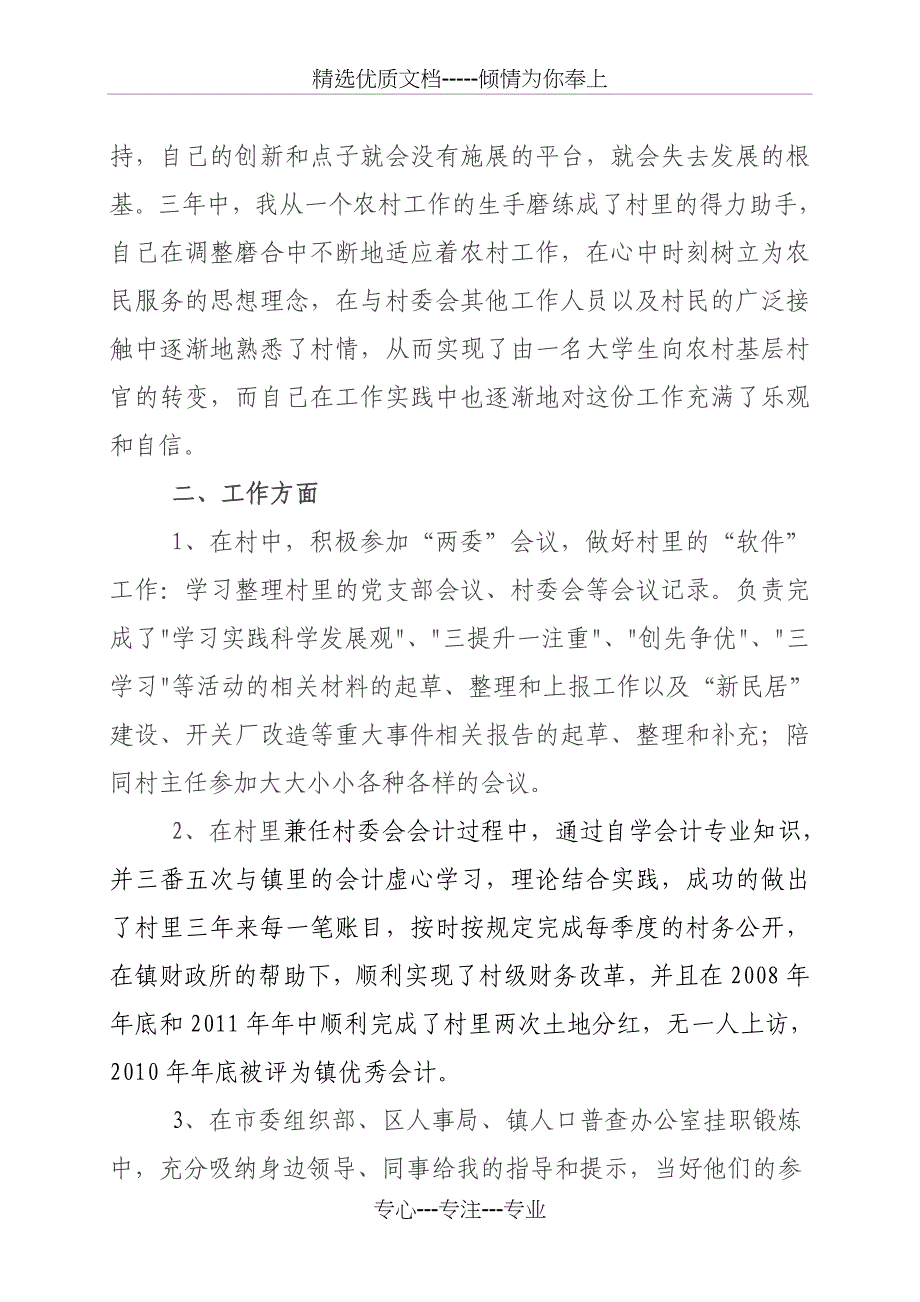 精选优质文档-----倾情为你奉上
持，自己的创新和点子就会没有施展的平台，就会失去发展的根
基。三年中，我从一个农村工作的生手磨练成了村里的得力助手，
自己在调整磨合中不断地适应着农村工作，在心中时刻树立为农
民服务的思想理念，在与村委会其他工作人员以及村民的广泛接
触中逐渐地熟悉了村情，从而实现了由一名大学生向农村基层村
官的转变，而自己在工作实践中也逐渐地对这份工作充满了乐观
和自信。
二、工作方面
1、在村中，积极参加“两委”会议，做好村里的“软件”
工作：学习整理村里的党支部会议、村委会等会议记录。负责完
成了"学习实践科学发展观"、"三提升一注重"、"创先争优"、"三
学习"等活动的相关材料的起草、整理和上报工作以及“新民居”
建设、开关厂改造等重大事件相关报告的起草、整理和补充；陪
同村主任参加大大小小各种各样的会议。
2、在村里兼任村委会会计过程中，通过自学会计专业知识，
并三番五次与镇里的会计虚心学习，理论结合实践，成功的做出
了村里三年来每一笔账目，按时按规定完成每季度的村务公开，
在镇财政所的帮助下，顺利实现了村级财务改革，并且在 2008 年
年底和 2011 年年中顺利完成了村里两次土地分红，无一人上访，
2010 年年底被评为镇优秀会计。
3、在市委组织部、区人事局、镇人口普查办公室挂职锻炼
中，充分吸纳身边领导、同事给我的指导和提示，当好他们的参
专心---专注---专业